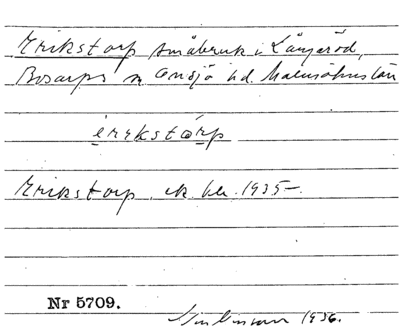 Erikstorp småbruk i Långaröd,
Bosarps sn Onsjö hd. Malmöhus län
èrikstárp
Erikstorp ek. bl. 1935–
Nr 5709.
1936.